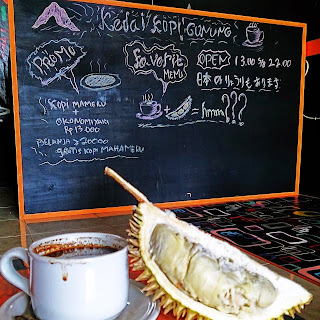 Kedai Kopi GUNUNG
PROMO
KOPI MAMERU
+
OKONOMIYAKI
Rp 13.000
BELANJA > 20000
GRATIS KOPI MAHAMERU
Favorit
MENU
+
= hmm???
OPEN 13.00 to 22.00
日本のりょうりもあります